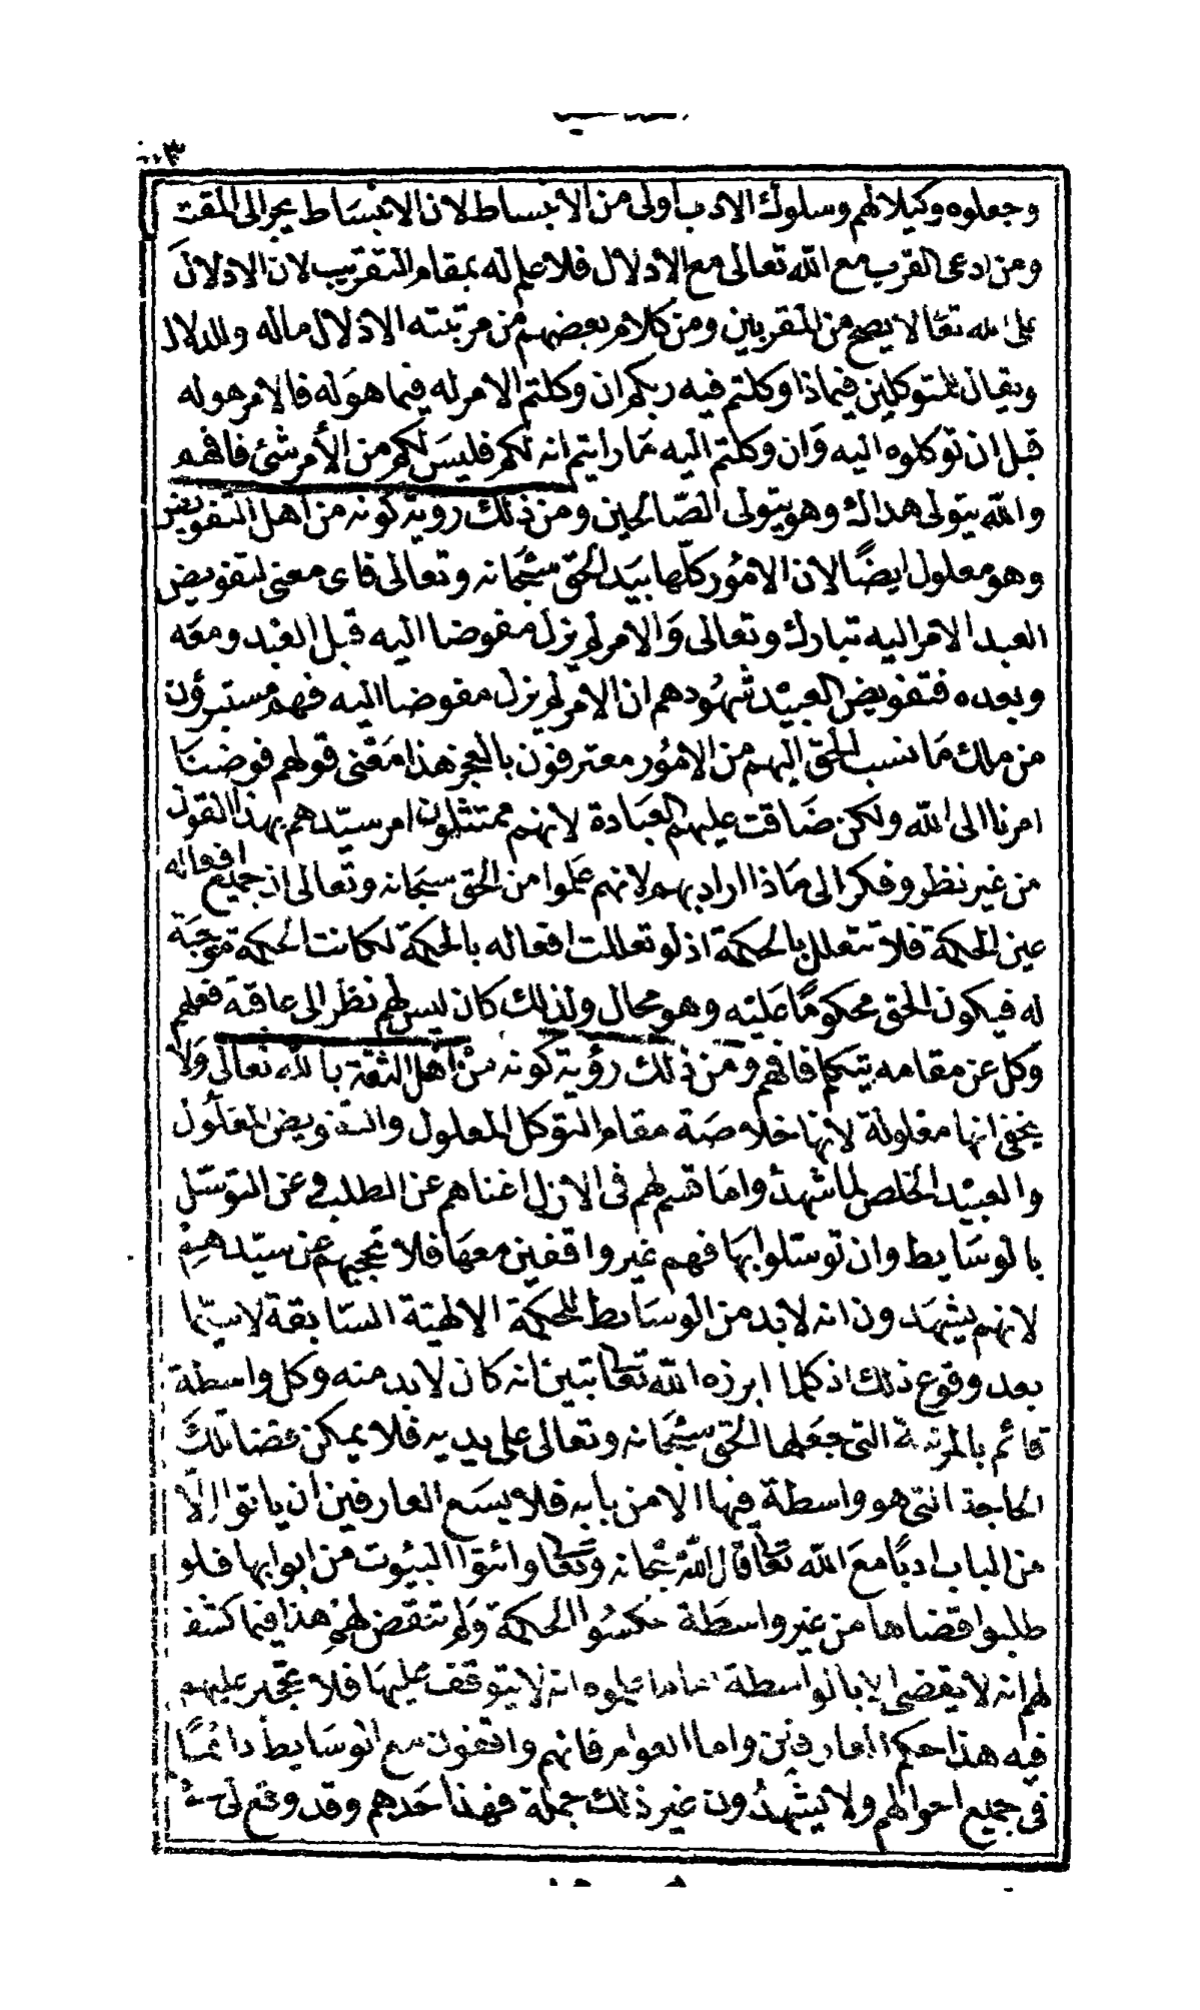 وجعلوه وكيلا لهم وسلوك الادب اولى من الانبساط لان الانبساط يجر الى المقت
ومن ادعى القرب مع الله تعالى مع الادلال فلا علم له بمقام التقريب لان الادلال
على الله تعالا لا يصح من المقربين ومن كلام بعضهم من مرتبته الاذلال ماله وللدلال
ويقال للمتوكلين فيما ذا وكلتم فيه ربكم ان وكلتم الامر له فيما هو له فالامر هو له
قبل ان توكلوه اليه وان وكلتم اليه ما رايتم انه لكم فليس لكم من الأمر شئ فافهم
والله يتولى هداك وهو يتولى الصالحين ومن ذلك روية كونه من اهل التفويض
وهو معلول ايضًا لان الامور كلها بيد الحق سبحانه وتعالى فاى معنى لتفويض
العبد الامر اليه تبارك وتعالى والامر لم يزل مفوضا اليه قبل العبد ومعه
وبعده فتفويض العبيد شهودهم ان الامر لم يزل مفوضا اليه فهم مستبرؤن
من ملك ما نسب الحق اليهم من الامور معترفون بالعجز هذا معنى قولهم فوضنا
امرنا الى الله ولكن ضاقت عليهم العبادة لانهم ممتثلون امر سيدهم بهذا القول
من غير نظر وفكر الى ماذا اراد بهم لانهم علموا من الحق سبحانه وتعالى ان جميع افعاله
عين الحكمة فلا تتعلل بالحكمة اذ لو تعللت افعاله بالحكمة لكانت الحكمة موجبة
له فيكون الحق محكومًا عليه وهو محال ولذلك كان ليس لهم نظر الى عاقبة فعلهم
وكل عن مقامه يتكلم فافهم ومن ذلك رؤية كونه من اهل الثقة بالله تعالى ولا
يخفى انها معلولة لانها خلاصة مقام التوكل المعلول والتفويض المعلول
والعبيد الخلص لما شهدوا ما قسم لهم فى الازل اغناهم عن الطلب وعن التوسل
بالوسايط وان توسلوا بها فهم غير واقفين معها فلا تحجبهم عن سيدهم
لانهم يشهدون انه لا بد من الوسايط للحكمة الالهية السابقة لا سيما
بعد وقوع ذلك اذ كلما ابرزه الله تعا تبين انه كان لا بد منه وكل واسطة
قائم بالمرتبة التى جعلها الحق سبحانه وتعالى على يديه فلا يمكن قضا تلك
الحاجة التى هو واسطة فيها الا من بابه فلا يسع العارفين ان ياتوا الا
من الباب ادبًا مع الله تعا قال الله سبحانه وتعا وائتوا البيوت من ابوابها فلو
طلبوا قضاها من غير واسطة عكسوا الحكمة ولم تنقض لهم هذا فيما كشف
لهم انه لا يقضى الا بالواسطة علموه انه لا يتوقف عليها فلا تحجر عليهم
فيه هذا حكم العارفين واما العوام فانهم واقفون مع الوسايط دائمًا
فى جميع احوالهم ولا يشهدون غير ذلك جملة فهذا حدهم وقد وقع لى